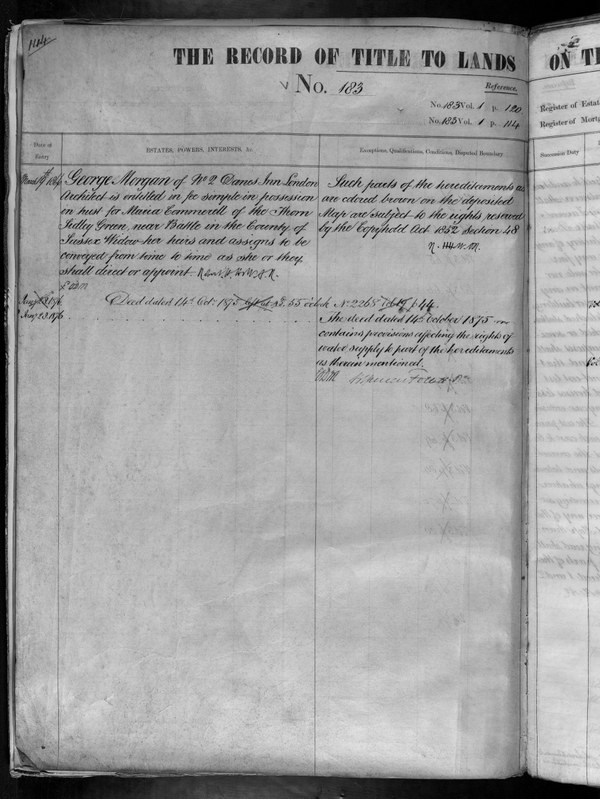 114
THE RECORD OF TITLE TO LANDS
No. 183
Reference.
No. 183 Vol. 1 p. 120
No. 183 Vol. 1 p. 114
Date of Entry
ESTATES, POWERS, INTERESTS, &c.
Exceptions, Qualifications, Conditions, Disputed Boundary
George Morgan of No 2 Danes Inn London
Architect is entitled in fee simple in possession
in trust for Maria Emmerell of the Thorn
Sedley Green, near Battle in the County of
Sussex Widow her heirs and assigns to be
conveyed from time to time as she or they
shall direct or appoint.
Such parts of the hereditaments as
are colored brown on the deposited
Map are subject to the rights reserved
by the Copyhold Act 1852 Section 48
Aug 23 1876
Deed dated 14th Octr 1875
No 2265
44
Aug 23 1876
The deed dated 14th October 1875
contains provisions affecting the rights of
water supply to part of the hereditaments
as therein mentioned.
ON T
Register of Estat
Register of Mort
Succession Duty